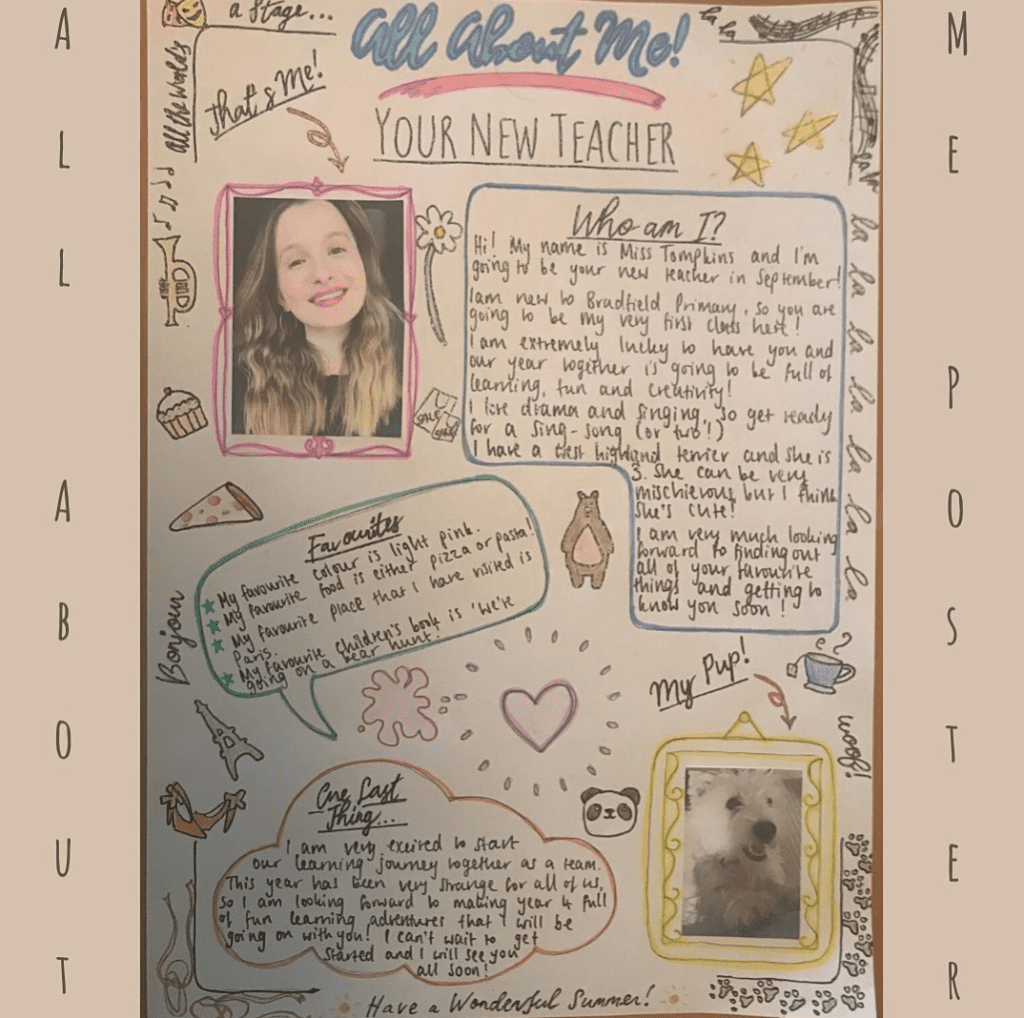 ALL ABOUT
ME POSTER
All the World's
a Stage...
All About Me!
la la
la la
That's Me!
YOUR NEW TEACHER
Who am I?
Hi! My name is Miss Tompkins and I'm
going to be your new teacher in September!
I am new to Bradfield Primary, so you are
going to be my very first class here!
I am extremely lucky to have you and
our year together is going to be full of
learning, fun and creativity!
I love drama and singing, so get ready
for a sing-song (or two!)
I have a west highland terrier and she is
3. She can be very
mischievous but I think
she's cute!
I am very much looking
forward to finding out
all of your favourite
things and getting to
know you soon!
la la la la la la la la
SALE
Favourites
My favourite colour is light pink.
My favourite food is either pizza or pasta!
My favourite place that I have visited is
Paris.
My favourite children's book is 'We're
going on a bear hunt.'
Bonjour
My Pup!
woof!
One Last
Thing...
I am very excited to start
our learning journey together as a team.
This year has been very strange for all of us,
so I am looking forward to making year 4 full
of fun learning adventures that I will be
going on with you! I can't wait to get
started and I will see you
all soon!
Have a Wonderful Summer!